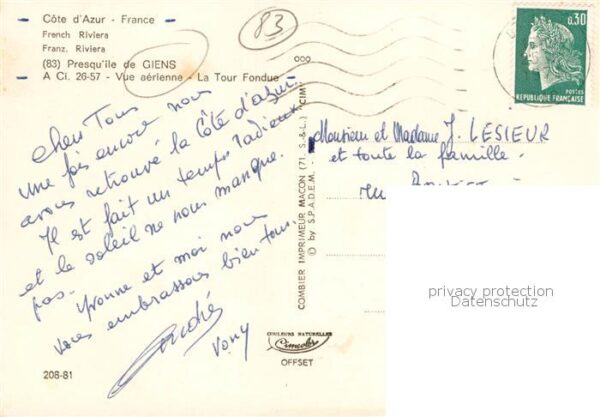 Côte d'Azur - France
French Riviera
Franz. Riviera
(83) Presqu'ile de GIENS
A Ci. 26-57 - Vue aérienne - La Tour Fondue
83
0,30
POSTES
REPUBLIQUE FRANÇAISE
Chers Tous
une fois encore nous
avons retrouvé la Côte d'azur.
Il est fait un temps radieux
et le soleil ne nous manque
pas.
Yvonne et moi nous
vous embrassons bien tous.
André
Vony
208-81
COMBIER IMPRIMEUR MACON (71, S.-&-L.) "CIM"
© by S.P.A.D.E.M.
COULEURS NATURELLES
Cimcolor
OFFSET
Monsieur et Madame J. LESIEUR
et toute la famille.
privacy protection
Datenschutz